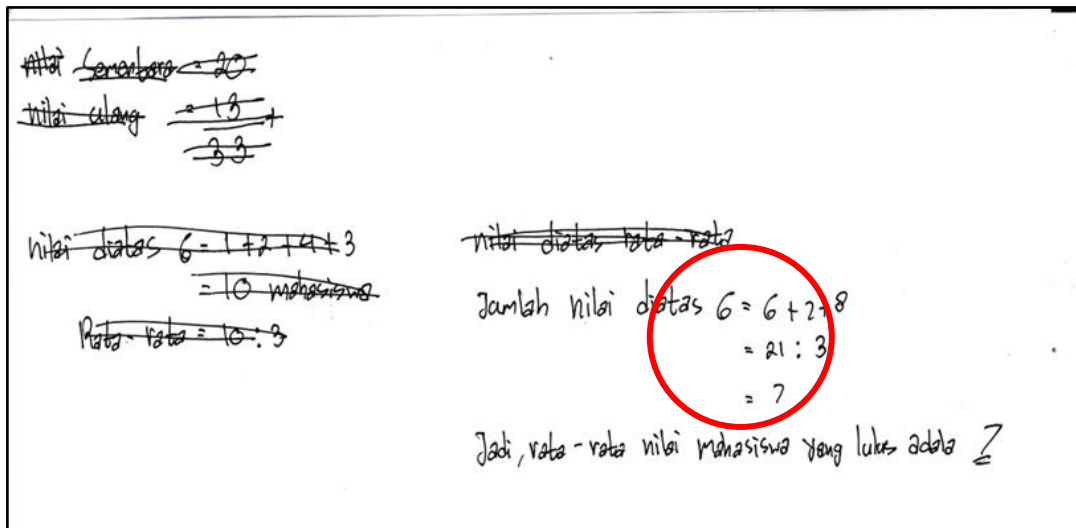 nilai Sementara = 20
nilai ulang = 13 +
33
nilai diatas 6 = 1 + 2 + 4 + 3
= 10 mahasiswa
Rata-rata = 10 : 3
nilai diatas rata-rata
Jumlah nilai diatas 6 = 6 + 7 + 8
= 21 : 3
= 7
Jadi, rata-rata nilai mahasiswa yang lulus adala 7